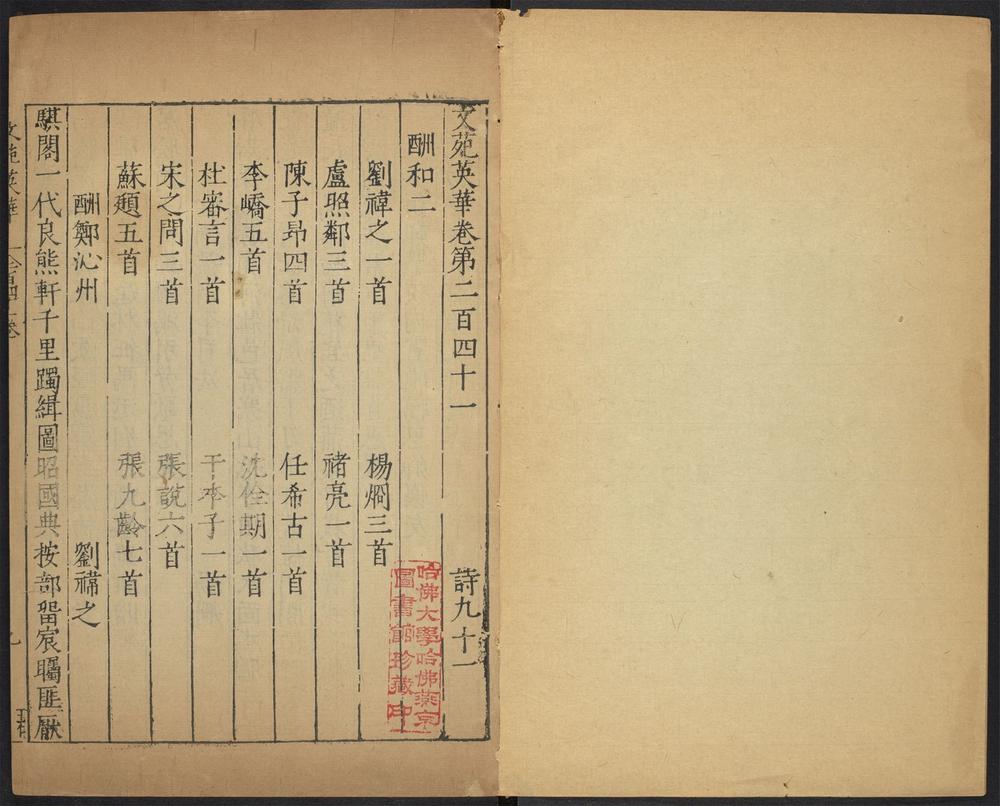 文苑英華卷第二百四十一 詩九十一
酬和二
劉禕之一首 楊烱三首
盧照鄰三首 禇亮一首
陳子昂四首 任希古一首
李嶠五首 沈佺期一首
杜審言一首 于季子一首
宋之問三首 張說六首
蘇頲五首 張九齡七首
酬鄭沁州 劉禕之
騏閣一代良熊軒千里躅緝圖昭國典按部留宸矚匪厭
文苑英華 卷
哈佛大學哈佛燕京
圖書館珍藏印